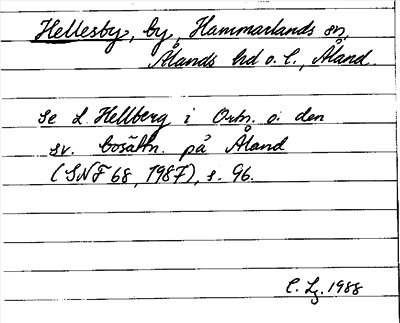 Hellesby, by, Hammarlands sn,
Ålands hd o. l., Åland.
se L. Hellberg i Ortn. o. den
sv. bosättn. på Åland
(SNF 68, 1987), s. 96.
C. Lg. 1988